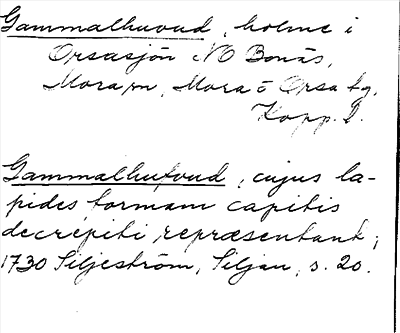 Gammalhuvud, holme i
Orsasjön NO Bonäs,
Mora sn, Mora o Orsa tg,
Kopp. l.
Gammalhufvud, cujus la-
pides formam capitis
decrepiti repræsentant;
1730 Siljeström, Siljan, s. 20.